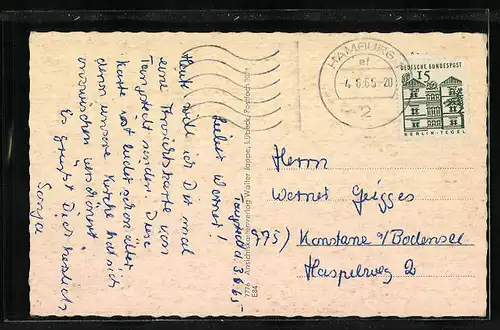 Tangstedt d. 3.6.65
Lieber Werner!
Heute will ich Dir mal
eine Ansichtskarte von
Tangstedt senden. Diese
Karte ist leider schon älter
denn unsere Kirche hat sich
inzwischen verschönert.
Es grüßt Dich herzlich
7776 Ansichtskartenverlag Walter Jaspe, Lübeck, Postfach
E84
HAMBURG
ef
-4.6.65-20
2
DEUTSCHE BUNDESPOST
15
BERLIN-TEGEL
Herrn
Werner
775) Konstanz a/Bodensee
Haspelweg 2